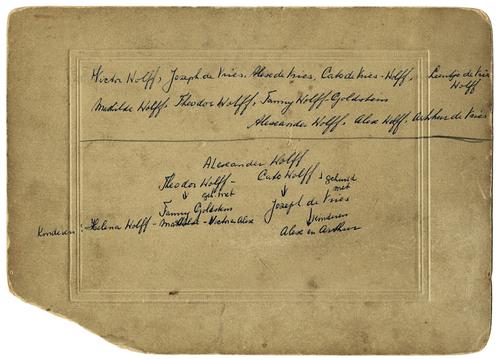 Victor Wolff, Joseph de Vries, Alex de Vries, Cato de Vries-Wolff, Leentje de Vries Wolff
Mathilde Wolff, Theodor Wolff, Fanny Wolff-Goldstein
Alexander Wolff, Alex Wolff, Arthur de Vries
Alexander Wolff
Theodor Wolff - Cato Wolff gehuwd met
↓ getr met ↓
Fanny Goldstein Joseph de Vries
Kinderen: Helena Wolff - Mathilde - Victor Alex ↓ kinderen
Alex en Arthur